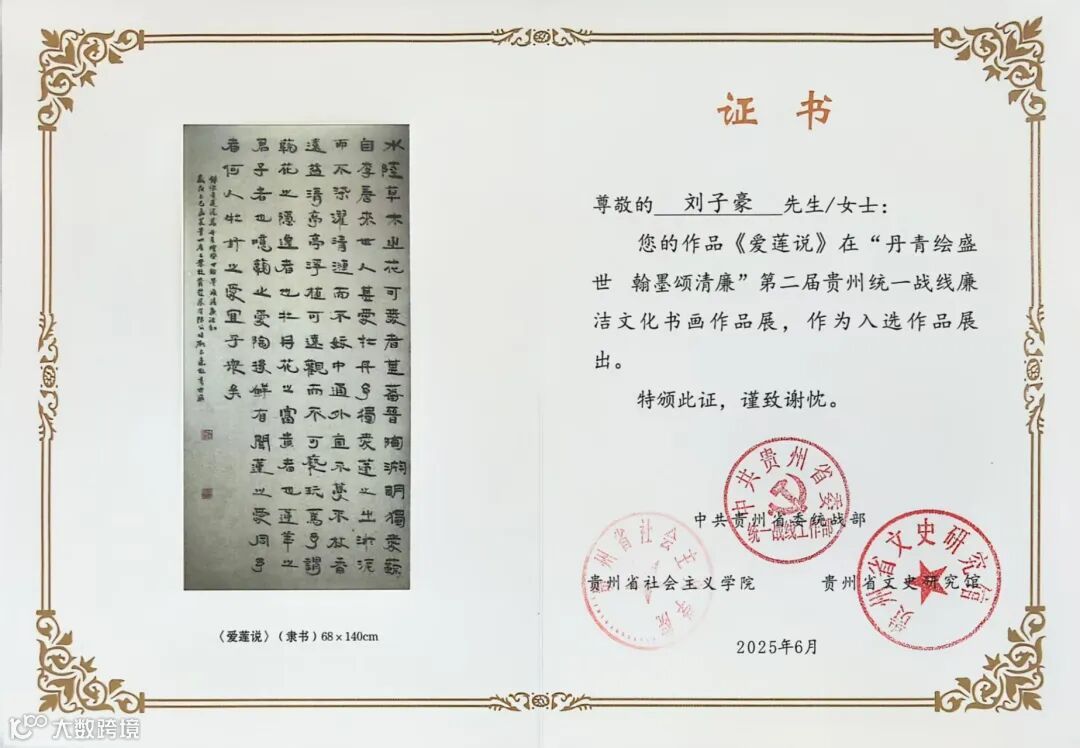 水陸草木之花可愛者甚蕃晉陶淵明獨愛菊
自李唐來世人甚愛牡丹予獨愛蓮之出淤泥
而不染濯清漣而不妖中通外直不蔓不枝香
遠益清亭亭淨植可遠觀而不可褻玩焉予謂
菊花之隱逸者也牡丹花之富貴者也蓮華之
君子者也噫菊之愛陶後鮮有聞蓮之愛同予
者何人牡丹之愛宜乎衆矣
《爱莲说》（隶书）68×140cm
证书
尊敬的 刘子豪 先生/女士：
您的作品《爱莲说》在“丹青绘盛
世 翰墨颂清廉”第二届贵州统一战线廉
洁文化书画作品展，作为入选作品展
出。
特颁此证，谨致谢忱。
中共贵州省委
统一战线工作部
中共贵州省委统战部
贵州省社会主义学院
贵州省社会主义学院
贵州省文史研究馆
贵州省文史研究馆
2025年6月
大数跨境